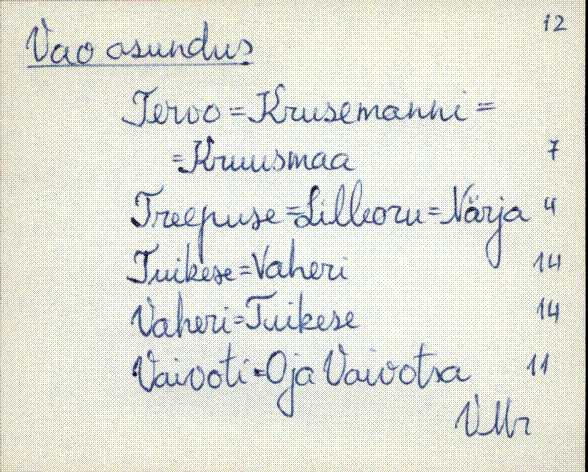 12
Vao asundus
Tervo = Krusemanni =
= Kruusmaa 7
Treepuse = Lilleoru = Närja 4
Tuikese = Vaheri 14
Vaheri = Tuikese 14
Vaivoti = Oja Vaivotsa 11